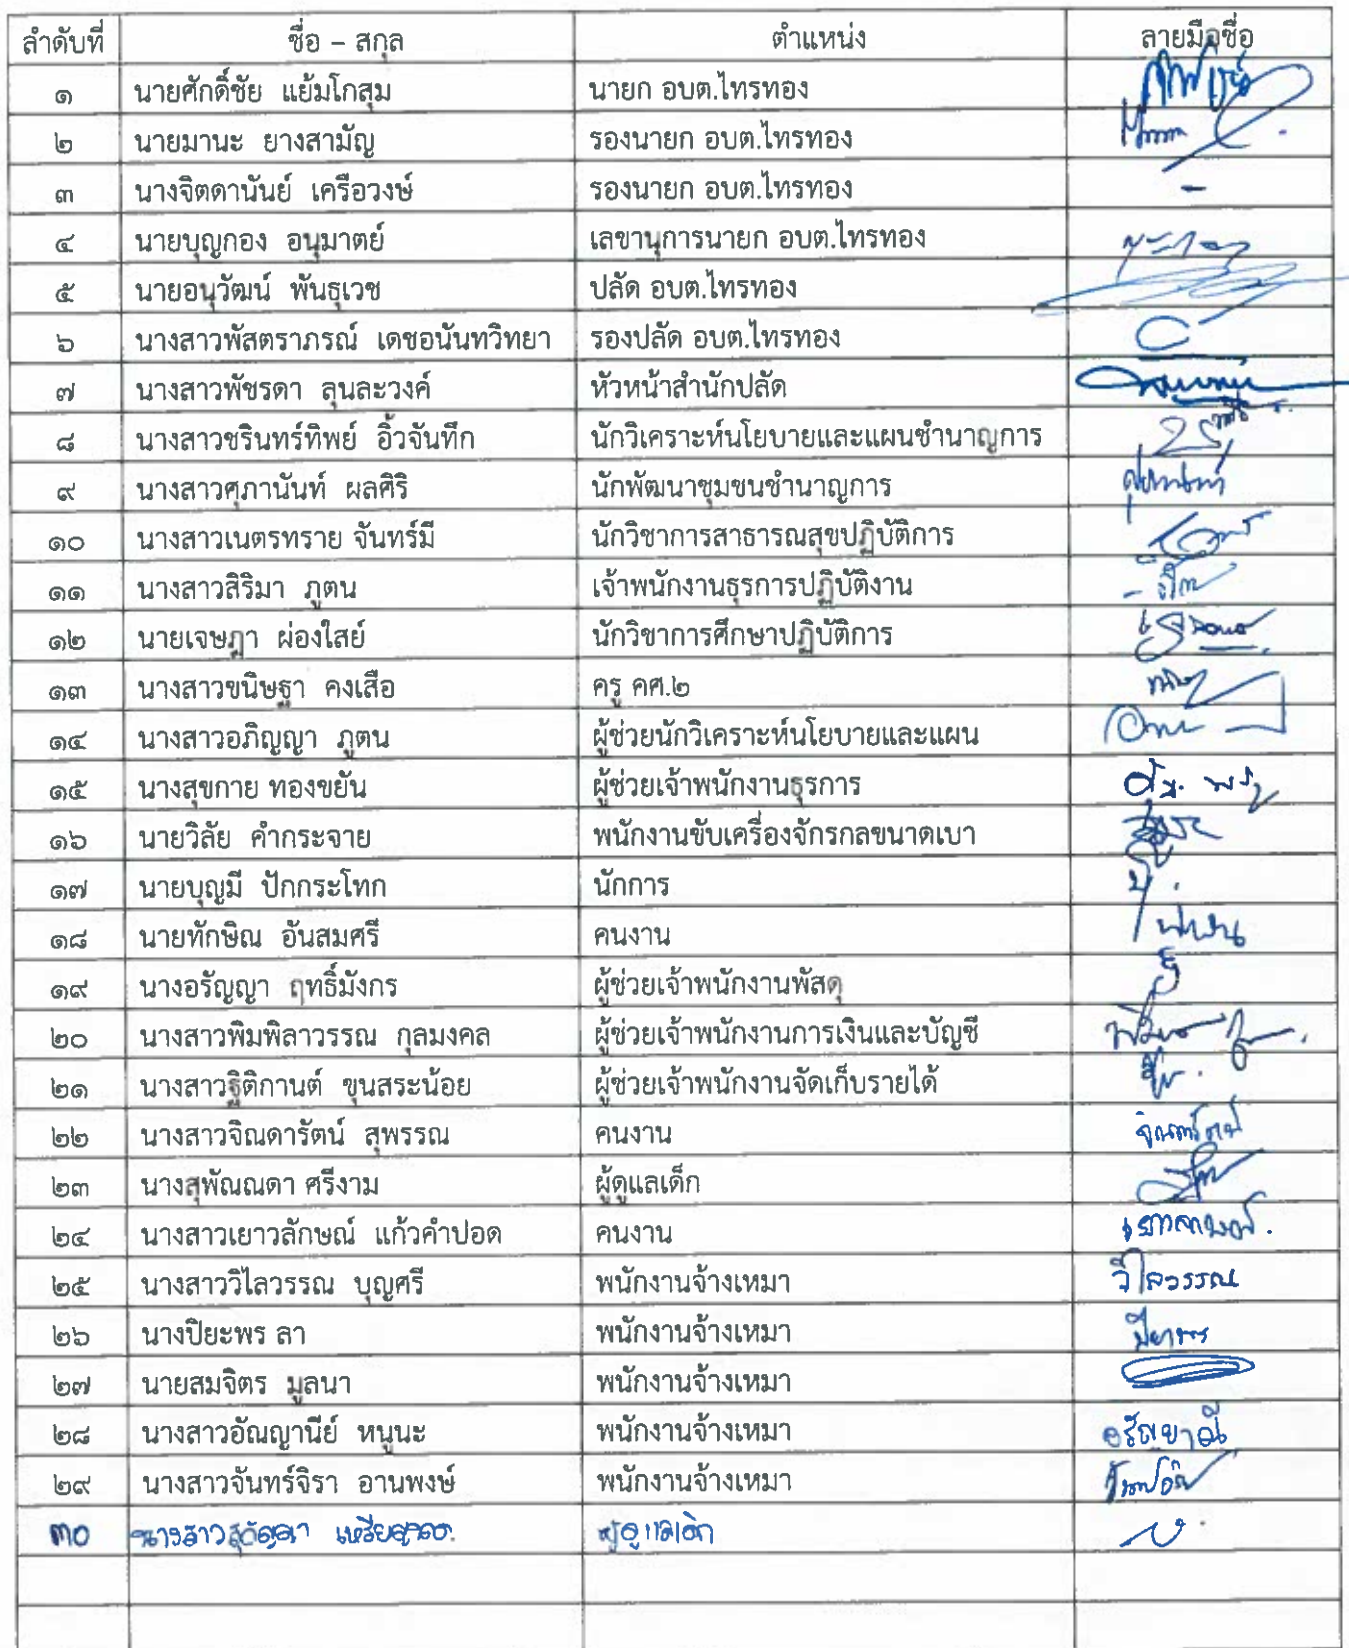 ลำดับที่ ชื่อ – สกุล ตำแหน่ง ลายมือชื่อ
๑ นายศักดิ์ชัย แย้มโกสุม นายก อบต.ไทรทอง
๒ นายมานะ ยางสามัญ รองนายก อบต.ไทรทอง
๓ นางจิตดานันย์ เครือวงษ์ รองนายก อบต.ไทรทอง -
๔ นายบุญกอง อนุมาตย์ เลขานุการนายก อบต.ไทรทอง
๕ นายอนุวัฒน์ พันธุเวช ปลัด อบต.ไทรทอง
๖ นางสาวพัสตราภรณ์ เดชอนันทวิทยา รองปลัด อบต.ไทรทอง
๗ นางสาวพัชรดา ลุนละวงค์ หัวหน้าสำนักปลัด
๘ นางสาวชรินทร์ทิพย์ อิ้วจันทึก นักวิเคราะห์นโยบายและแผนชำนาญการ
๙ นางสาวศุภานันท์ ผลศิริ นักพัฒนาชุมชนชำนาญการ
๑๐ นางสาวเนตรทราย จันทร์มี นักวิชาการสาธารณสุขปฏิบัติการ
๑๑ นางสาวสิริมา ภูตน เจ้าพนักงานธุรการปฏิบัติงาน
๑๒ นายเจษฎา ผ่องใสย์ นักวิชาการศึกษาปฏิบัติการ
๑๓ นางสาวขนิษฐา คงเสือ ครู คศ.๒
๑๔ นางสาวอภิญญา ภูตน ผู้ช่วยนักวิเคราะห์นโยบายและแผน
๑๕ นางสุขกาย ทองขยัน ผู้ช่วยเจ้าพนักงานธุรการ
๑๖ นายวิลัย คำกระจาย พนักงานขับเครื่องจักรกลขนาดเบา
๑๗ นายบุญมี ปักกระโทก นักการ
๑๘ นายทักษิณ อันสมศรี คนงาน
๑๙ นางอรัญญา ฤทธิ์มังกร ผู้ช่วยเจ้าพนักงานพัสดุ
๒๐ นางสาวพิมพิลาวรรณ กุลมงคล ผู้ช่วยเจ้าพนักงานการเงินและบัญชี
๒๑ นางสาวฐิติกานต์ ขุนสระน้อย ผู้ช่วยเจ้าพนักงานจัดเก็บรายได้
๒๒ นางสาวจิณดารัตน์ สุพรรณ คนงาน
๒๓ นางสุพัณณดา ศรีงาม ผู้ดูแลเด็ก
๒๔ นางสาวเยาวลักษณ์ แก้วคำปอด คนงาน เยาวลักษณ์.
๒๕ นางสาววิไลวรรณ บุญศรี พนักงานจ้างเหมา วิไลวรรณ
๒๖ นางปิยะพร ลา พนักงานจ้างเหมา
๒๗ นายสมจิตร มูลนา พนักงานจ้างเหมา
๒๘ นางสาวอัญญานีย์ หนูนะ พนักงานจ้างเหมา
๒๙ นางสาวจันทร์จิรา อานพงษ์ พนักงานจ้างเหมา
๓๐ นางสาว ผู้ดูแลเด็ก